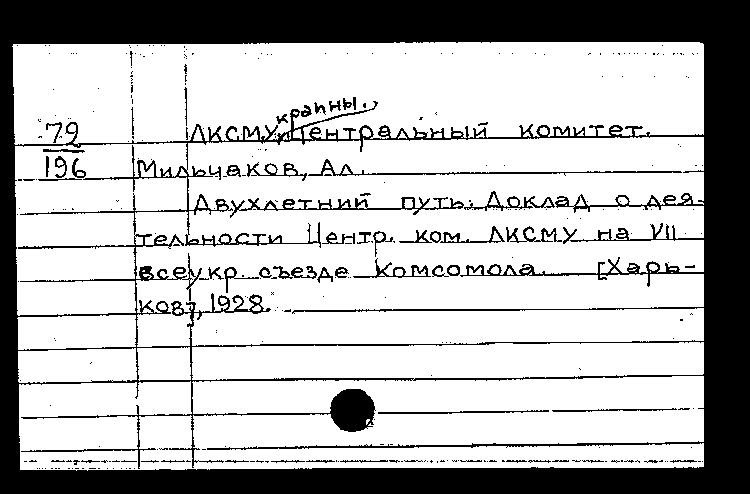 краины.,
79 ЛКСМУ, Центральный комитет.
196 Мильчаков, Ал.
Двухлетний путь. Доклад о дея-
тельности Центр. ком. ЛКСМУ на VII
всеукр. съезде Комсомола. [Харь-
ков], 1928.